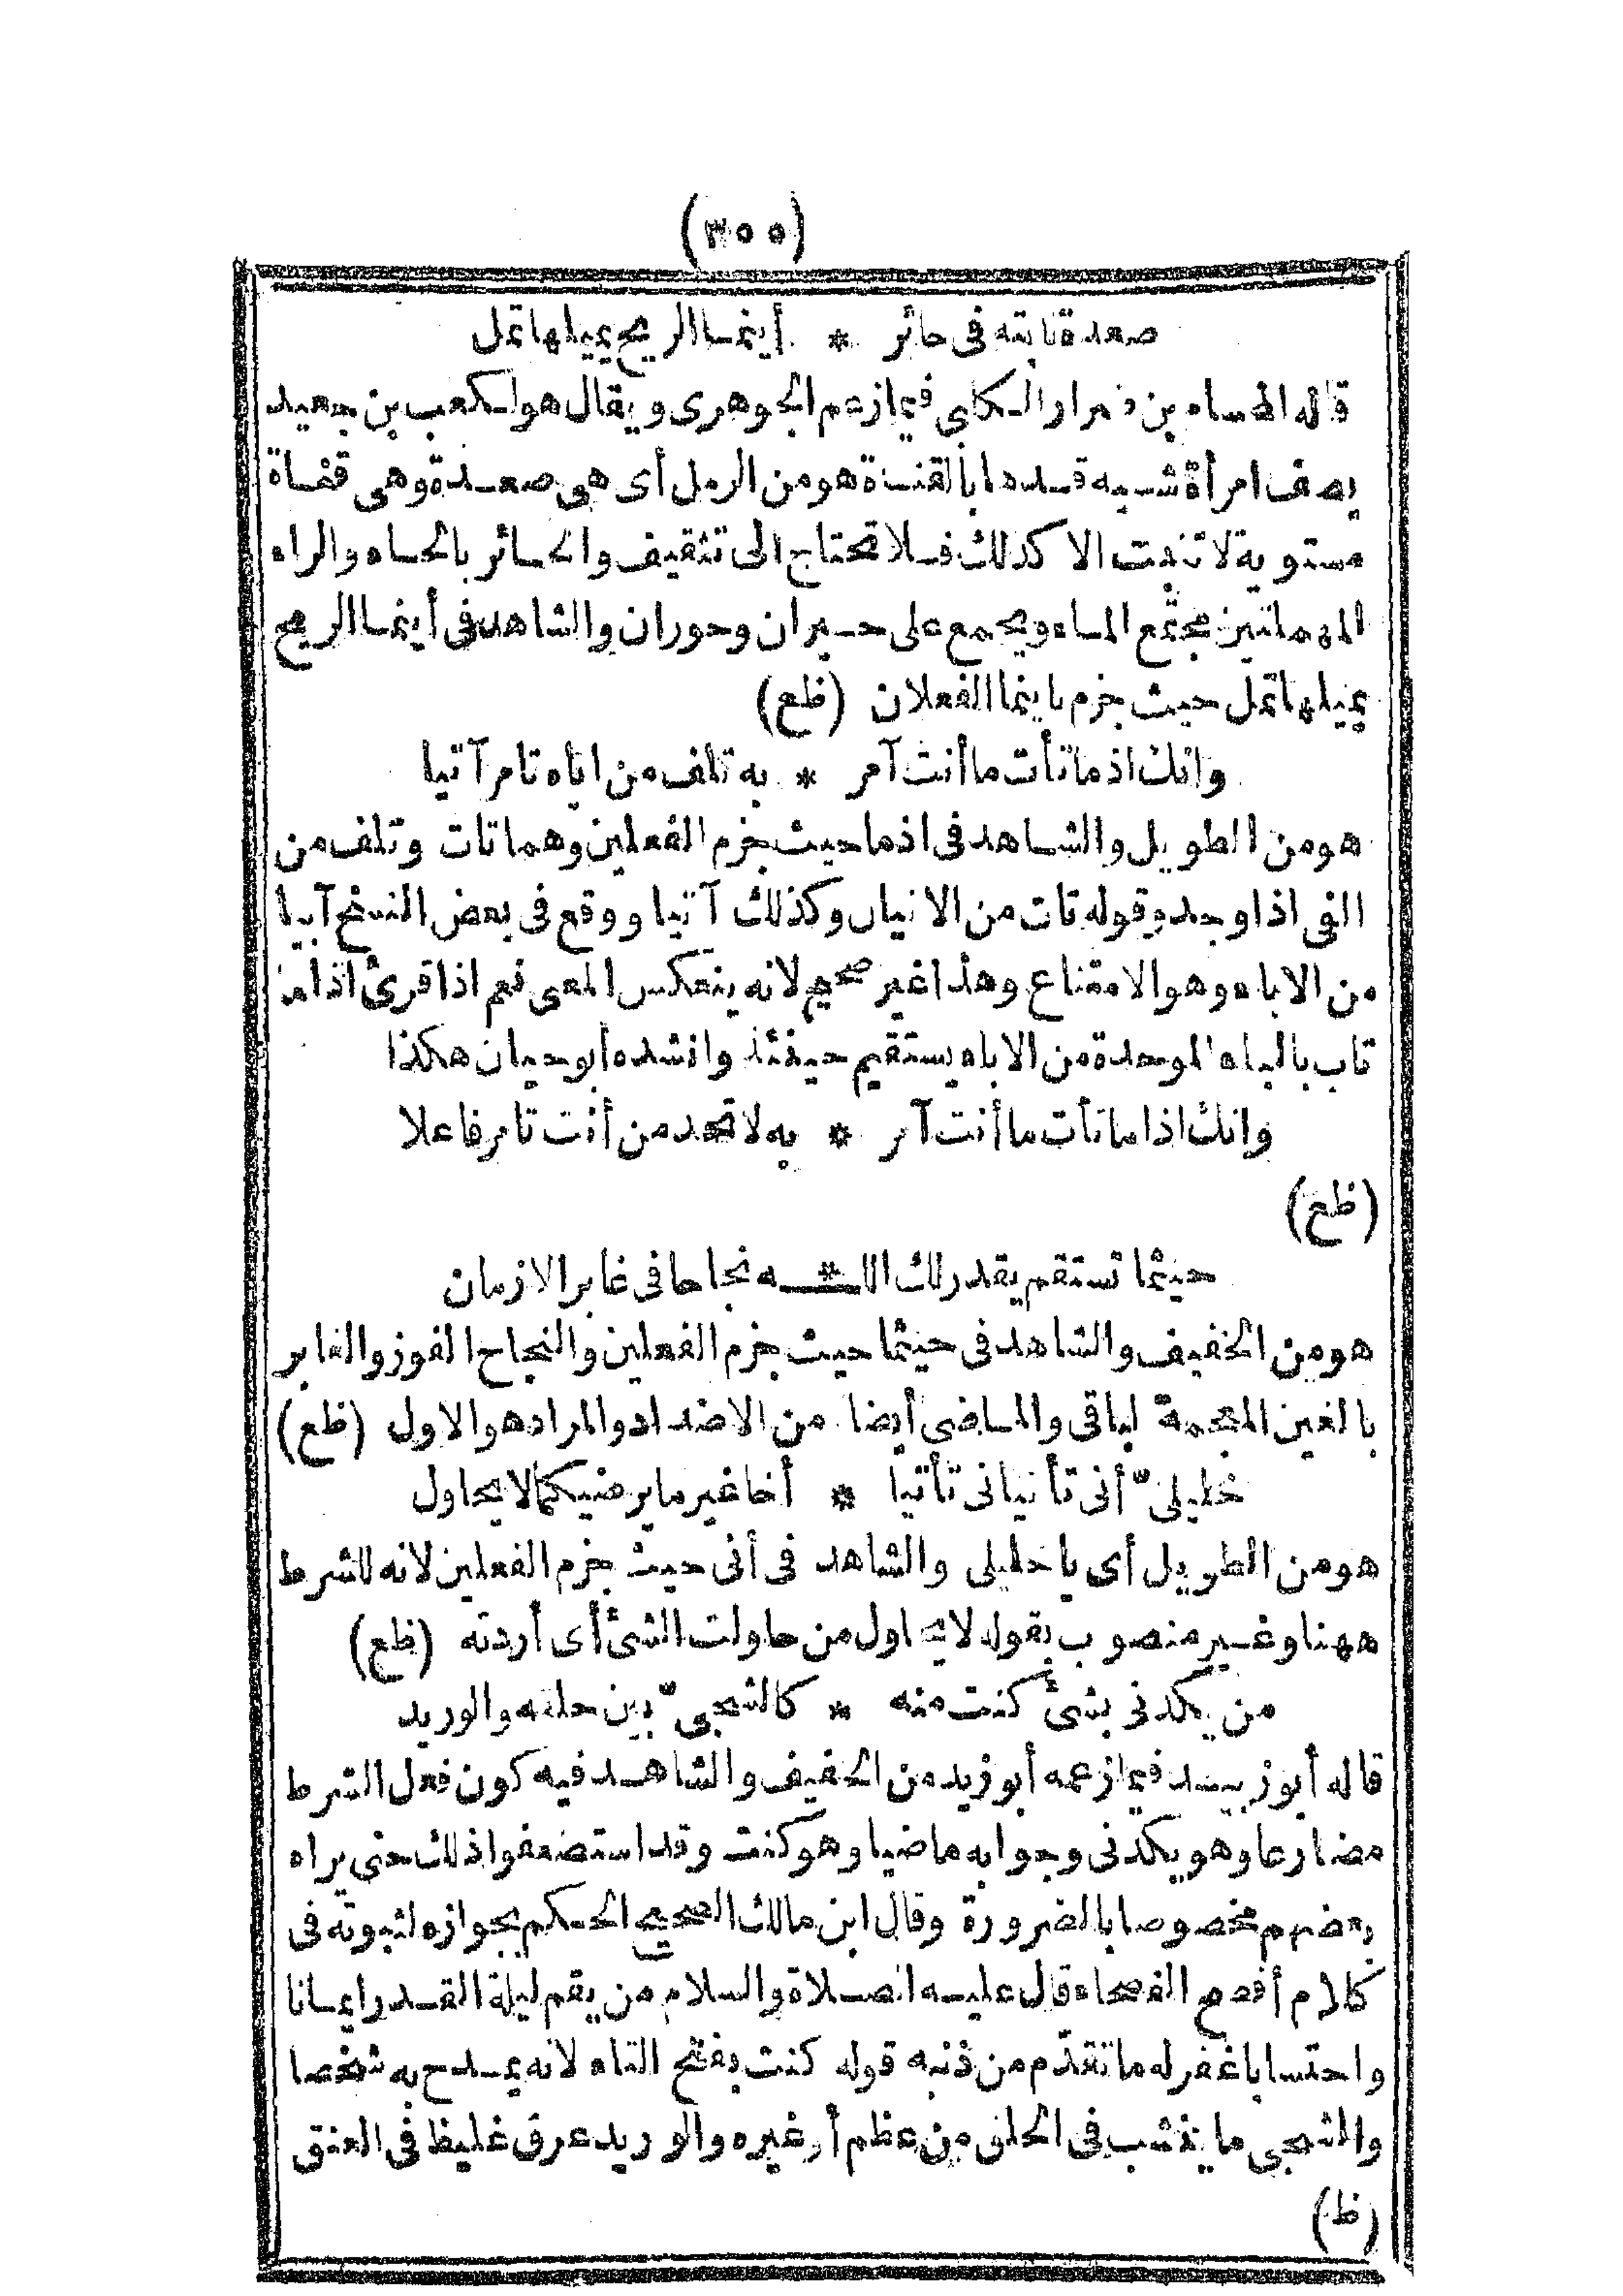 (٣٥٥)
صعدة نابتة فى حائر * أينما الريح يميلها تمل
قاله الحسام بن ضرار الكلبى فيما زعم الجوهرى ويقال هو لكعب بن جعيد
يصف امرأة شبه قدها بالقناة هو من الرمل أى هى صعدة وهى قناة
مستوية لا تنبت الا كذلك فلا تحتاج الى تثقيف والحائر بالحاء والراء
المهملتين مجتمع الماء ويجمع على حيران وحوران والشاهد فى أينما الريح
يميلها تمل حيث جزم باينما الفعلان (ظع)
وانك اذ ما تأت ما أنت آمر * به تلف من اياه تامر آتيا
هو من الطويل والشاهد فى اذ ما حيث جزم الفعلين وهما تات وتلف من
الفى اذا وجد وقوله تات من الاتيان وكذلك آتيا ووقع فى بعض النسخ آبيا
من الاباء وهو الامتناع وهذا غير صحيح لانه ينعكس المعنى نعم اذا قرئ اذ ما
تاب بالباء الموحدة من الاباء يستقيم حينئذ وانشده أبو حيان هكذا
وانك اذا ما تأت ما أنت آمر * به لا تجد من أنت تامر فاعلا
(ظع)
حيثما تستقم يقدر لك الله * نجاحا فى غابر الازمان
هو من الخفيف والشاهد فى حيثما حيث جزم الفعلين والنجاح الفوز والغابر
بالغين المعجمة الباقى والماضى أيضا من الاضداد والمراد هو الاول (ظع)
خليلىّ أنى تأتيانى تأتيا * أخا غير ما يرضيكما لا يحاول
هو من الطويل أى يا خليلى والشاهد فى أنى حيث جزم الفعلين لانه للشرط
ههنا وغير منصوب بقوله لا يحاول من حاولت الشئ أى أردته (ظع)
من يكدنى بشئ كنت منه * كالشجىّ بين حلقه والوريد
قاله أبو زبيد فيما زعمه أبو زيد من الخفيف والشاهد فيه كون فعل الشرط
مضارعا وهو يكدنى وجوابه ماضيا وهو كنت وقد استضعفوا ذلك حتى يراه
بعضهم مخصوصا بالضرورة وقال ابن مالك الصحيح الحكم بجوازه لثبوته فى
كلام أفصح الفصحاء قال عليه الصلاة والسلام من يقم ليلة القدر ايمانا
واحتسابا غفر له ما تقدّم من ذنبه قوله كنت بفتح التاء لانه يمدح به شخصا
والشجى ما ينشب فى الحلق من عظم أو غيره والوريد عرق غليظ فى العنق
(ظ)